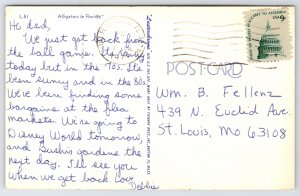 L-51
Alligators in Florida
Hi dad,
We just got back from
the ball game. It's rainy
today but in the 70s. It's
been sunny and in the 80s.
We've been finding some
bargains at the flea
markets. We're going to
Disney World tomorrow
and Bush's gardens the
next day. I'll see you
when we get back love
Debbie
POST CARD
TO ASSEMBLE
USA 9c
Wm. B. Fellenz
439 N. Euclid Ave
St. Louis, Mo 63108